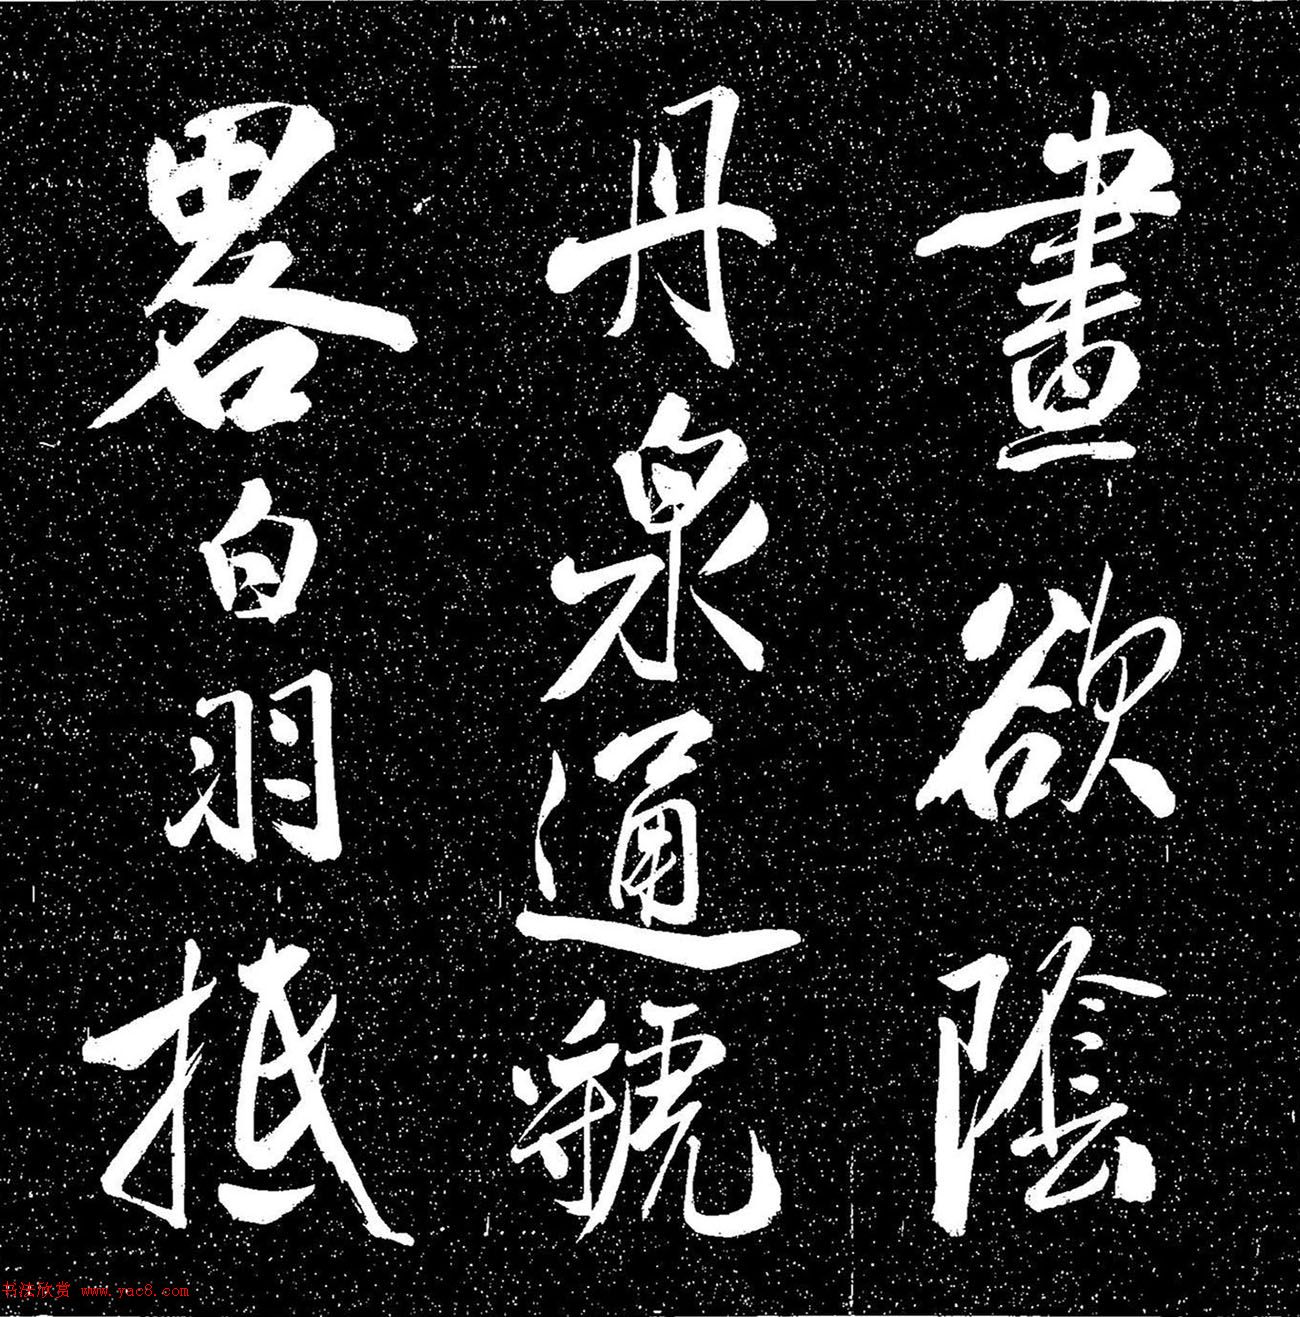 晝欲陰
丹泉通虢
畧白羽抵
书法欣赏 www.yac8.com